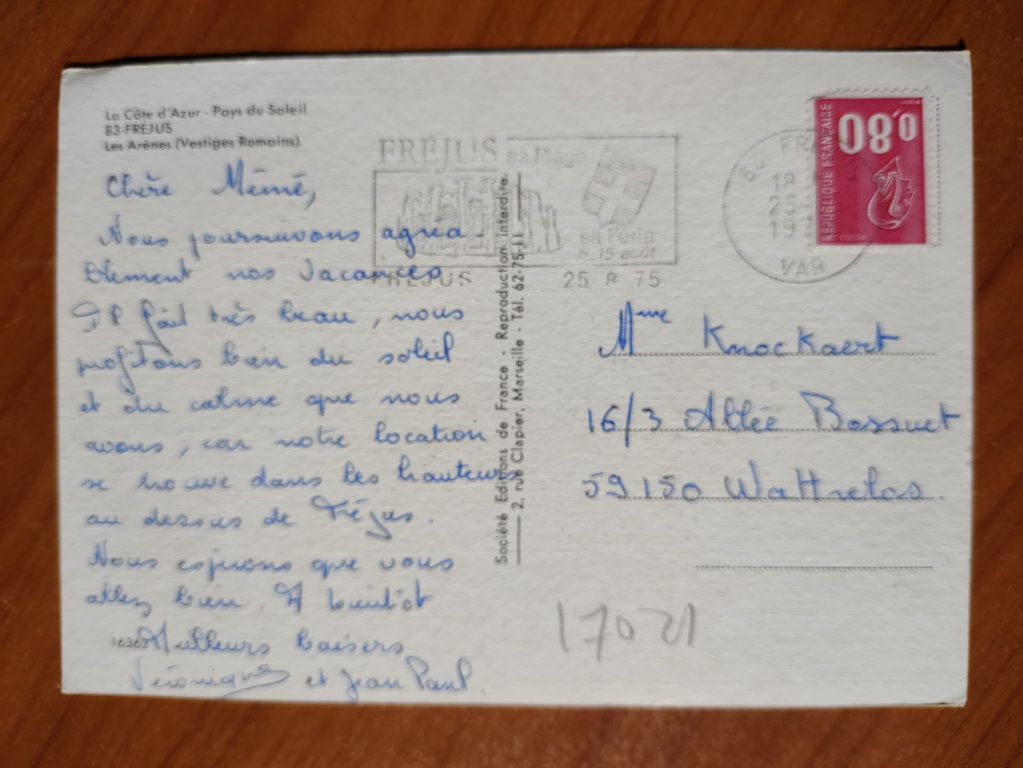 La Côte d'Azur - Pays du Soleil
83-FREJUS
Les Arènes (Vestiges Romains).
Chère Mémé,
Nous poursuivons agréa-
blement nos vacances
Il fait très beau, nous
profitons bien du soleil
et du calme que nous
avons, car notre location
se trouve dans les hauteurs
au dessus de Fréjus.
Nous espérons que vous
allez bien. A bientôt
16363
Meilleurs baisers
Véronique et Jean Paul.
Société Editions de France - Reproduction interdite.
2, rue Clapier, Marseille - Tél. 62-75-11
FRÉJUS sa Plage
sa Féria
8_15 août
FREJUS 25 8 75
83 FR
18
25
19
VAR
REPUBLIQUE FRANÇAISE
0,80
Mme Knockaert
16/3 Allée Bossuet
59150 Wattrelos.
17021